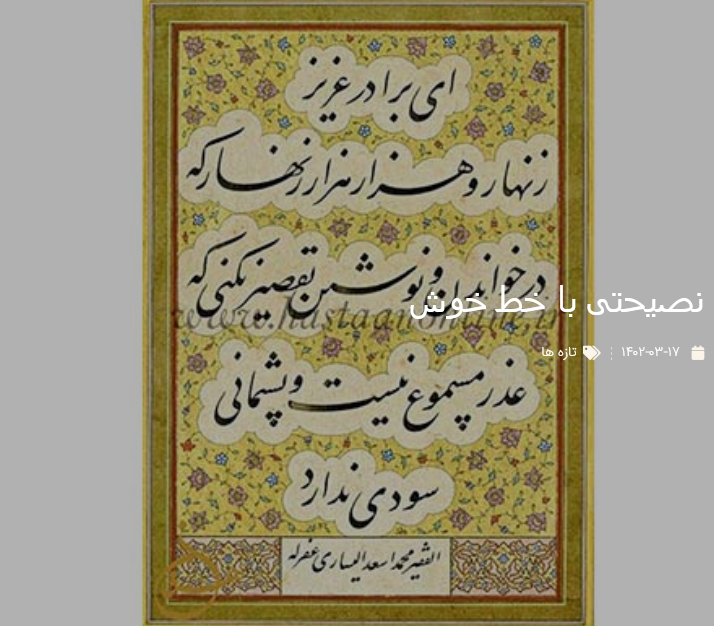 ای برادر عزیز
زنهار و هزار هزار زنهار که
در خواندن و نوشتن تقصیر نکنی که
نصیحتی با خط خوش
www.hastaanonline.ir
۱۴۰۲-۰۳-۱۷ تازه ها
عذر مسموع نیست و پشیمانی
سودی ندارد
الفقیر محمد اسعد الیساری غفرله